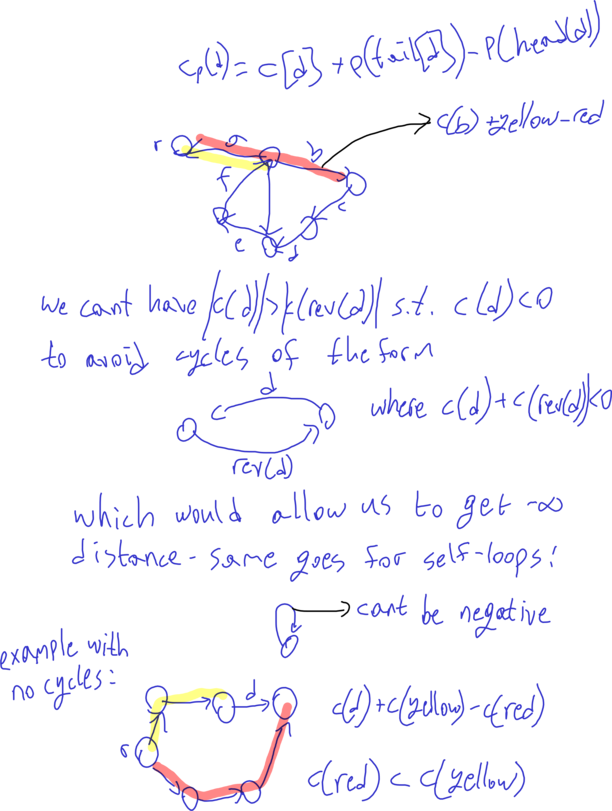 cp(d) = c[d] + p(tail[d]) - p(head(d))
r a b c(b) + yellow - red
f
c
e d
we cant have |c(d)| > |c(rev(d)| s.t. c(d) < 0
to avoid cycles of the form
d
where c(d) + c(rev(d)) < 0
rev(d)
which would allow us to get -∞
distance - same goes for self-loops!
cant be negative
example with
no cycles:
d c(d) + c(yellow) - c(red)
r
c(red) < c(yellow)